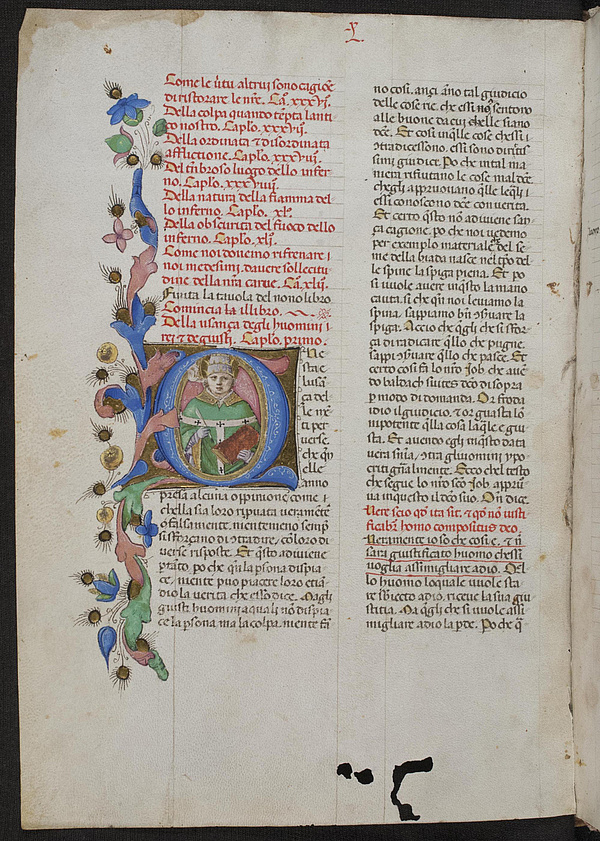 x
Come le v̄tu altrui sono cagiōe
di ristorare le nr̄e. Ca. xxxvi.
Della colpa quando tēpta lani
co nostro. Caplo. xxxvii.
Della ordinata ⁊ disordinata
afflictione. Caplo. xxxviii.
Del tn̄broso luogo dello infer
no. Caplo. xxxviiii.
Della natura della fiamma del
lo inferno. Caplo. xl.
Della obscurita del fuoco dello
inferno. Caplo. xli.
Come noi dovemo rifrenare i
noi medesimi, davere sollecitu
dine della nr̄a carne. Ca. xlii.
Finita la tavola del nono libro
Comincia la illibro.
Della usança degli huomini i
rei ⁊ de giusti. Caplo. primo.
Ue
ste
lusā
ça del
le mē
ti per
verse,
che qn̄
elle
anno
presa alcuna oppinione come i
chella sia loro ripvata veramēte
o falsamente, nientemeno semp̄
si sforçano di ↄtradire, ⁊ coloro di
verse risposte. Et q̄sto adiviene
p̄ tāto, po che q̄ la p̄sona dispia
ce, niente puo piacere loro etiā
dio la verita che esso dice. Ma gli
giusti huomini a quali nō dispia
ce la p̄sona, ma la colpa, niente
no cosi. ançi āno tal giudicio
delle cose rie, che essi nō sentono
alle buone da cui chelle siano
dc̄e. Et cosi inq̄lle cose chessi i
ↄtradicessono, essi sono dirictis
simi giudice. Po che in tal ma
niera rifiutano le cose mal dc̄e
chegli appruovano q̄lle leq̄li i
essi conoscono dc̄e con verita.
Et certo q̄sto nō adiviene san
ça cagione, po che noi vedemo
per exemplo materiale, del se
me della biada nasce nel tp̄o del
le spine la spiga piena. Et po
si vuole avere in q̄sto la mano
cauta, si che qn̄ noi leviamo la
spina, sappiamo bn̄ ↄs̄vare la
spiga. Accio che q̄gli che si sfor
ça di radicare q̄llo che pugne,
sappi ↄs̄vare q̄llo che pasce. Et
certo cosi fa lo nr̄o Job che avē
do baldach suites dc̄o di sopra
p modo di domanda. Or froda
idio il giudicio, ⁊ or guasta lōi
mpotente q̄lla cosa laq̄le e giu
sta. Et avendo egli in q̄sto data
vera sn̄ia, ↄtra gluomini ypo
criti gn̄almente. Ecco che l testo
che segue lo nr̄o sc̄o Job appru
va in questo il dc̄o suo. On dice.
Vere scio q̄d ita sit, ⁊ q̄d nō iusti
ficabit homo compositus deo.
Veramente io so che cosi e, ⁊ n̄
sara giustificato huomo chessi
voglia assimigliare adio. Q̄l
lo huomo loquale vuole sta
re subiecto adio, riceve la sua giu
stitia. Ma q̄gli che si vuole assi
migliare adio la p̄de. Po che q̄